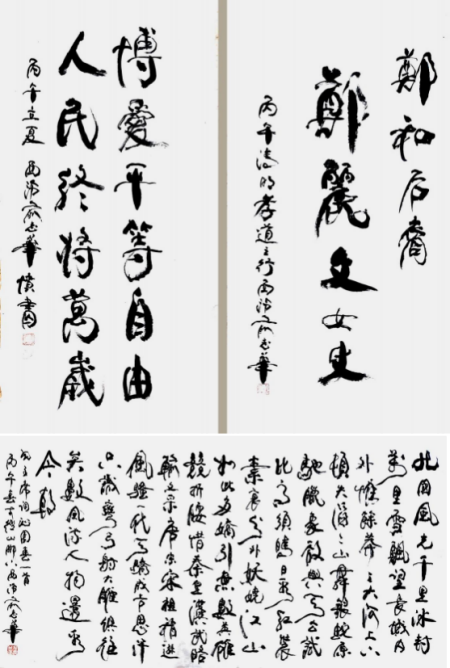 博愛平等自由
人民終將萬歲
丙午立夏 西湖俞志華
鄭和后裔
鄭麗文女史
丙午清明孝道之行西湖俞志華
北国風光千里冰封
萬里雪飄望長城内
外惟餘莽莽大河上下
頓失滔滔山舞銀蛇原
馳臘象欲與天公試
比高須晴日看紅裝
素裹分外妖嬈江山
如此多嬌引無數英雄
競折腰惜秦皇漢武略
輸文采唐宗宋祖稍遜
風騷一代天驕成吉思汗
只識彎弓射大雕俱往
矣數風流人物還看
今朝
毛主席詞沁園春一首
丙午春于稽山西湖俞志華